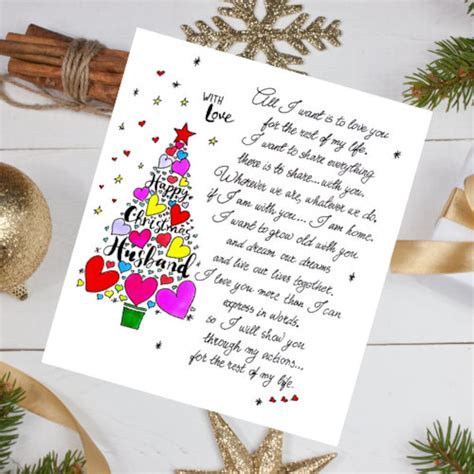 WITH
Love
Happy
Christmas
Husband
All I want is to love you
for the rest of my life.
I want to share everything
there is to share... with you.
Wherever we are, whatever we do,
if I am with you.... I am home.
I want to grow old with you
and dream our dreams
and live out lives together,
I love you more than I can
express in words.
so I will show you
through my actions...
for the rest of my life.